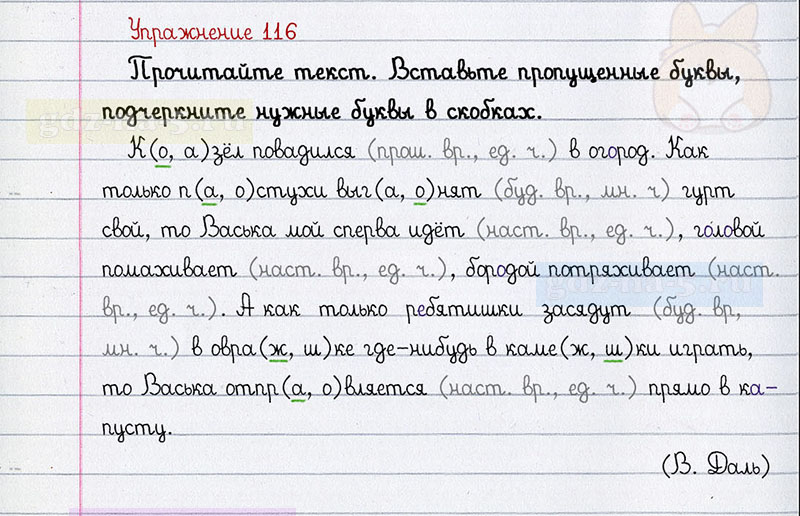 Упражнение 116
Прочитайте текст. Вставьте пропущенные буквы,
подчеркните нужные буквы в скобках.
К(о, а)зёл повадился (прош. вр., ед. ч.) в огород. Как
только п(а, о)стухи выг(а, о)нят (буд. вр., мн. ч) гурт
свой, то Васька мой сперва идёт (наст. вр., ед. ч.), головой
помахивает (наст. вр., ед. ч.), бородой потряхивает (наст.
вр., ед. ч.). А как только ребятишки засядут (буд. вр,
мн. ч.) в овра(ж, ш)ке где-нибудь в каме(ж, ш)ки играть,
то Васька отпр(а, о)вляется (наст. вр., ед. ч.) прямо в ка-
пусту.
(В. Даль)